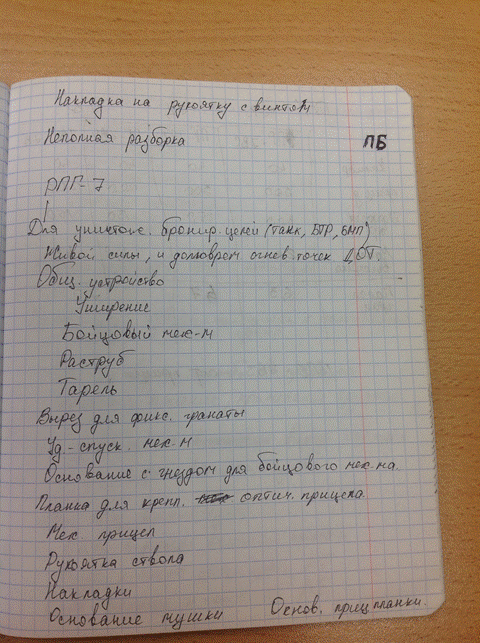 Накладка на рукоятку с винтом
Неполная разборка ПБ
РПГ-7
Для уничтож. бронир. целей (танк, БТР, БМП)
Живой силы, и долговрем огнев. точек ДОТ.
Общ. устройство
Уширение
Бойцовый мех-м
Раструб
Тарель
Вырез для фикс. гранаты
Уд.-спуск. мех-м
Основание с гнездом для бойцового мех-ма.
Планка для крепл. оптич. прицела
Мех. прицел
Рукоятка ствола
Накладки
Основание мушки Основ. приц планки.